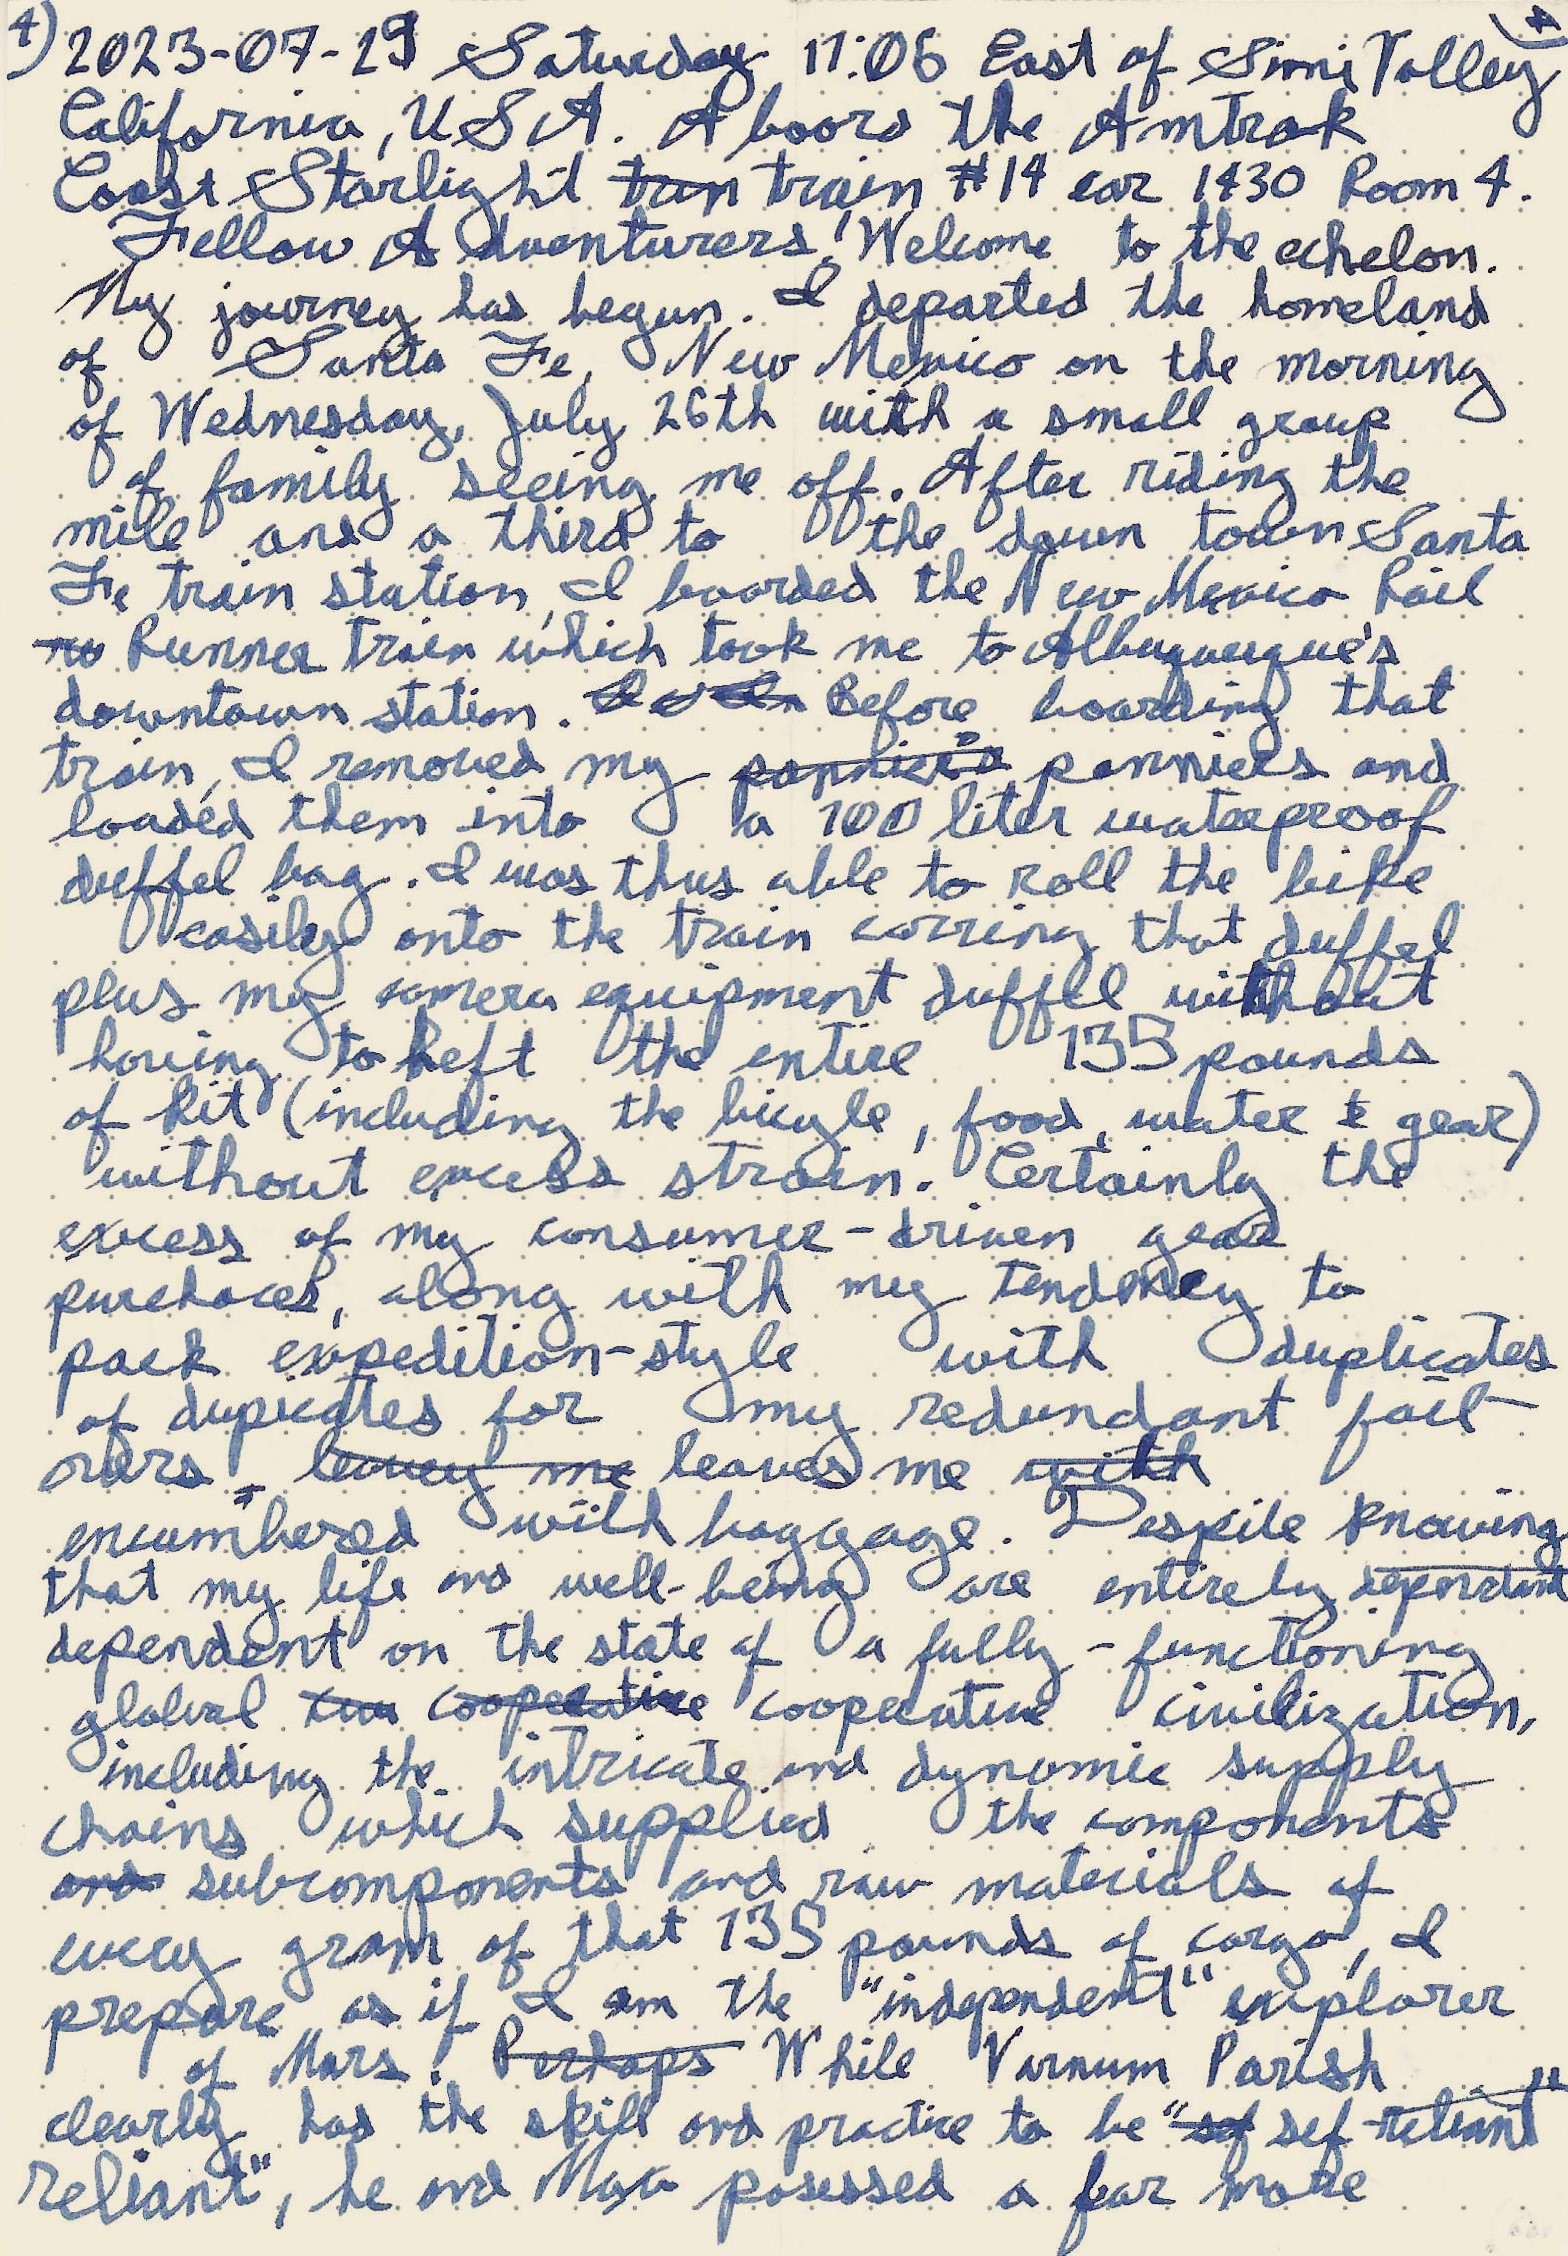 4) 2023-07-29 Saturday 11:06 East of Simi Valley
California, USA. Aboard the Amtrak
Coast Starlight trun train #14 car 1430 Room 4.
Fellow Adventurers! Welcome to the echelon.
My journey has begun. I departed the homeland
of Santa Fe, New Mexico on the morning
of Wednesday, July 26th with a small group
of family seeing me off. After riding the
mile and a third to the down town Santa
Fe train station, I boarded the New Mexico Rail
ru Runner train which took me to Albuquerque's
downtown station. Before boarding that
train, I removed my panniers panniers and
loaded them into a 100 liter waterproof
duffel bag. I was thus able to roll the bike
easily onto the train carring that duffel
plus my camera equipment duffel without
having to heft the entire 135 pounds
of kit (including the bicyle, food, water & gear)
without excess strain. Certainly the
excess of my consumer-driven gear
purchaces, along with my tendency to
pack expedition-style with duplicates
of dupicates for my redundant fail
overs, leavey me leaves me with
encumbered with baggage. Despite knowing
that my life and well-being are entirely dependant
dependent on the state of a fully-functioning
global coo cooperative cooperative civilization,
including the intricate and dynamic supply
chains which supplied the components
and subcomponents and raw materials of
every gram of that 135 pounds of cargo, I
prepare as if I am the "independent" explorer
of Mars! Perhaps While Varnum Parish
clearly has the skill and practice to be "sef sef-reliant"
reliant", he and Max posessed a far more